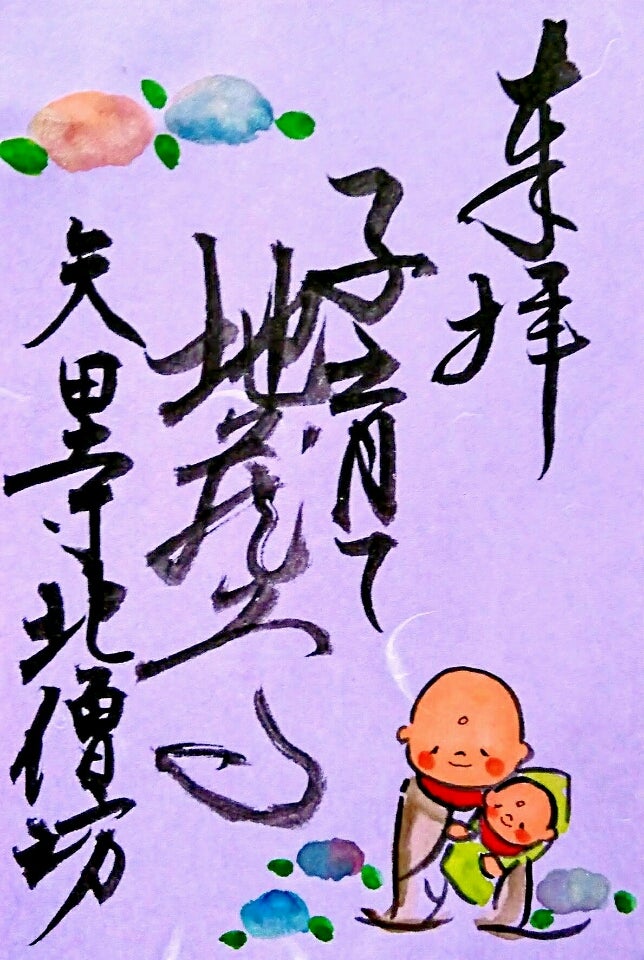 奉拝
子育て
地蔵尊
矢田寺北僧坊